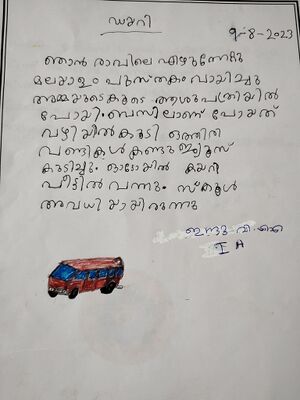 ഡയറി
9-8-2023
ഞാൻ രാവിലെ എഴുന്നേറ്റു
മലയാളം പുസ്തകം വായിച്ചു
അമ്മയുടെകൂടെ ആശുപത്രിയിൽ
പോയി. ബസിലാണ് പോയത്
വഴിയിൽകൂടി ഒത്തിരി
വണ്ടികൾ കണ്ടു ജ്യൂസ്
കുടിച്ചു. ഓട്ടോയിൽ കയറി
വീട്ടിൽ വന്നു. സ്കൂൾ
അവധി യായിരുന്നു
ഇന്ദു വി.ഐ
I A